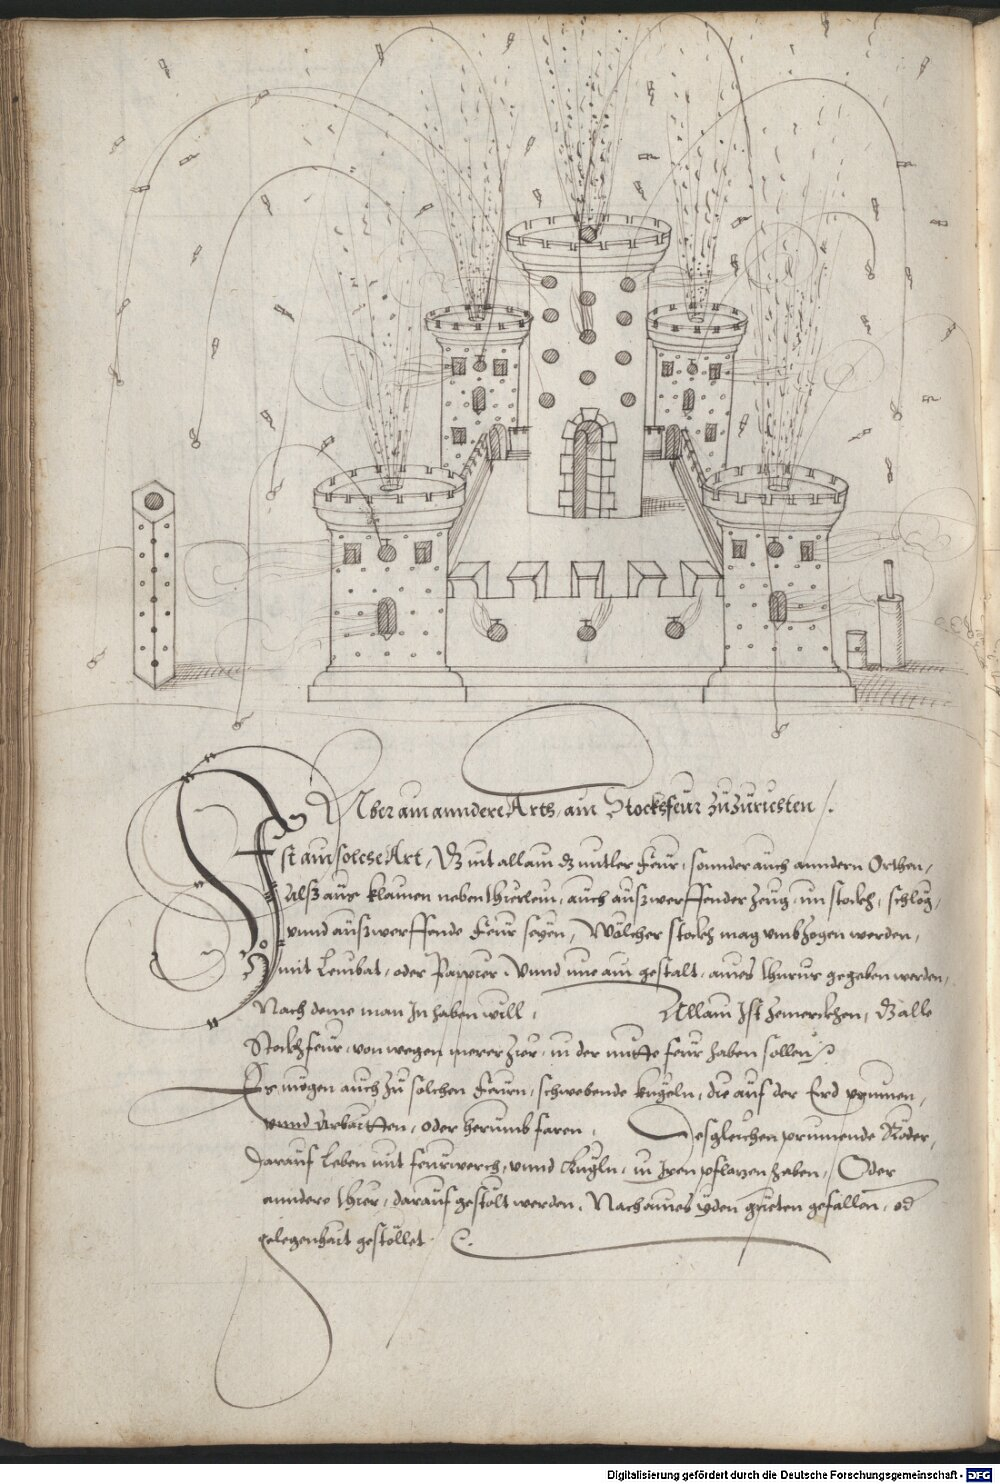 Aber am anndere Arth, ain Stockhfeur zuzurichten /.
Ist ain solche Art, Dz nit allain dz mitler Feur, sonnder auch anndern Orthen,
Alß auß klainen neben thürlein, auch außwerffender zeug, im stockh, schlög,
unnd außwerffende Feur seyen, Wölcher stockh mag umbzogen werden,
mit Leinbat, oder Pappier, Unnd ime ain gestalt, aines thurns gegeben werden,
Nach deme man In haben will, Allain Ist zemerckhen, Dz alle
Stockhfeur, von wegen merer zier, in der mitte feur haben sollen
Es mögen auch zu solchen Feurn, schwebende kugeln, die auf der Erd prinnen,
unnd Arbaitten, oder herumb faren, Desgleichen prinnende Röder,
Darauf Leben mit feurwerch, unnd Kugln, in Iren pflanzen haben, Oder
anndere thier, darauf gestölt werden, Nach aines yden gueten gefallen, od
gelegenhait gestöllet
Digitalisierung gefördert durch die Deutsche Forschungsgemeinschaft - DFG